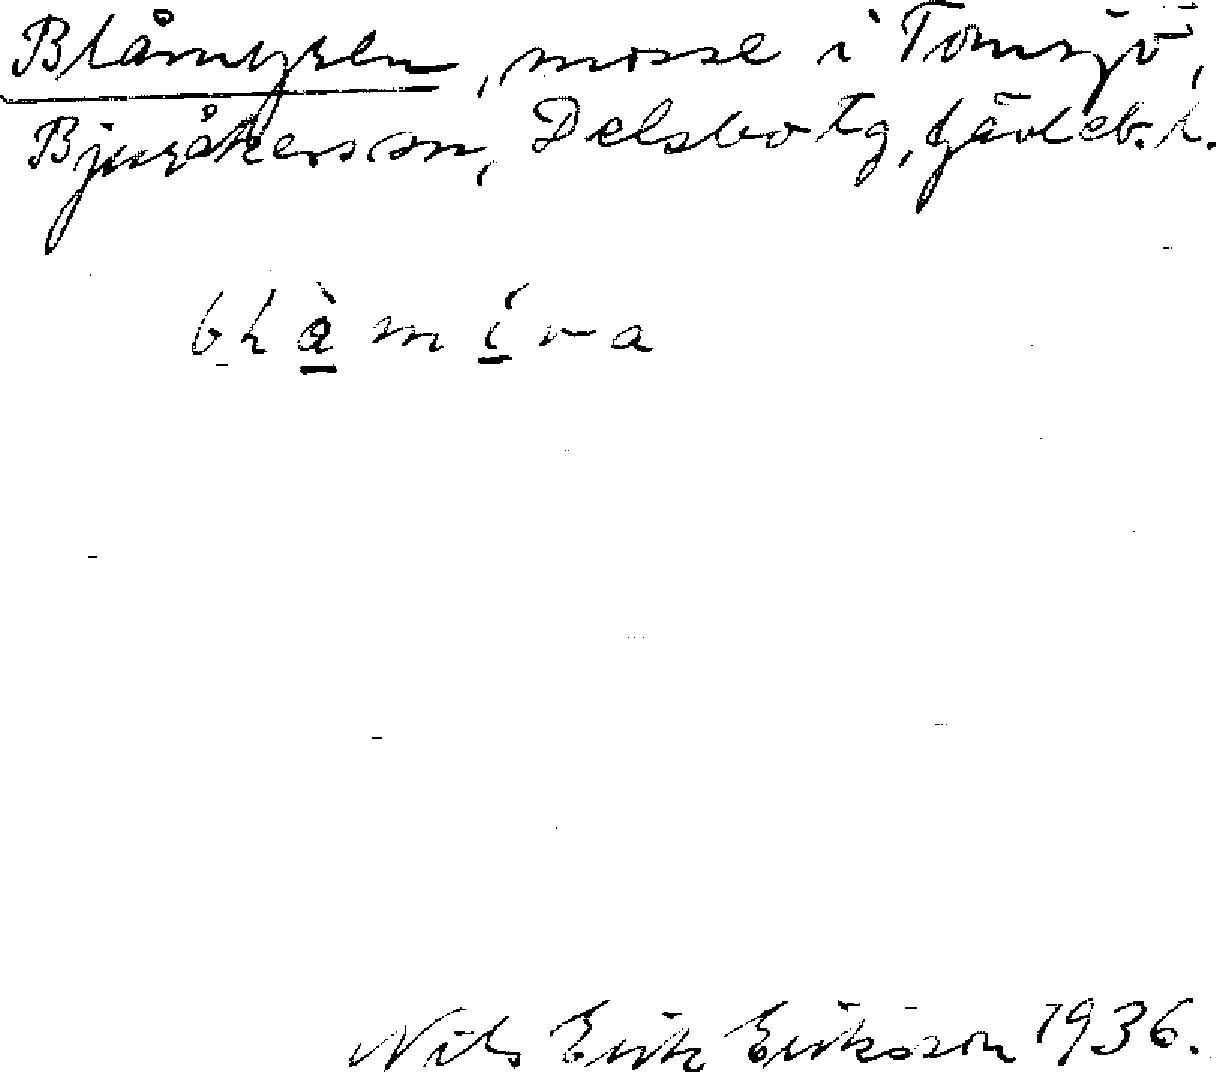 Blåmyren, mosse i Tomsjö,
Bjuråkers sn, Delsbo tg, Gävleb. l.
Nils Erik Eriksson 1936.